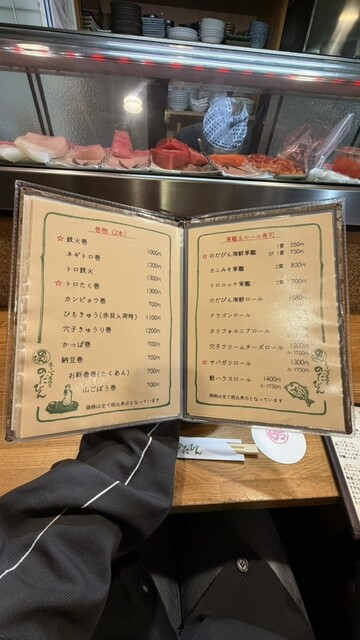 巻物(2本)
☆鉄火巻 1000円
ネギトロ巻 1200円
トロ鉄火 1300円
☆トロたく巻 1300円
カンピョウ巻 700円
ひもきゅう(赤貝入荷時) 1100円
穴子きゅうり巻 1200円
かっぱ巻 700円
納豆巻 700円
お新香巻(たくあん) 700円
山ごぼう巻 700円
価格は全て税込表示となっています
のだぴん
軍艦&ロール寿司
☆のだぴん海鮮軍艦 1貫 550円
カニみそ軍艦 2貫 800円
トロユッケ軍艦 700円
のだぴん海鮮ロール
ドラゴンロール
カリフォルニアロール
穴子クリームチーズロール 1300円
ハーフ750円
☆サバガリロール 1300円
ハーフ750円
鮭ハラスロール 1400円
ハーフ750円
価格は全て税込表示となっています
のだぴん